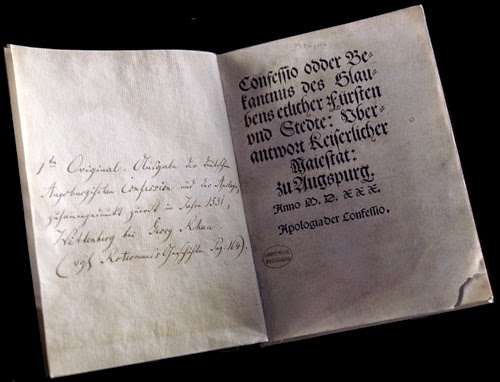 1te Original-Ausgabe der deutschen
Augsburgischen Confession und der Apologie,
zusammengedruckt zuerst im Jahre 1531,
Wittenberg bei Georg Rhau
(vgl. Geschichte Pag. 164).
Confessio odder Be-
kantnus des Glau-
bens etlicher Fürsten
vnd Stedte: Vber-
antwort Keiserlicher
Maiestat:
zu Augspurg.
Anno M. D. XXX.
Apologia der Confessio.